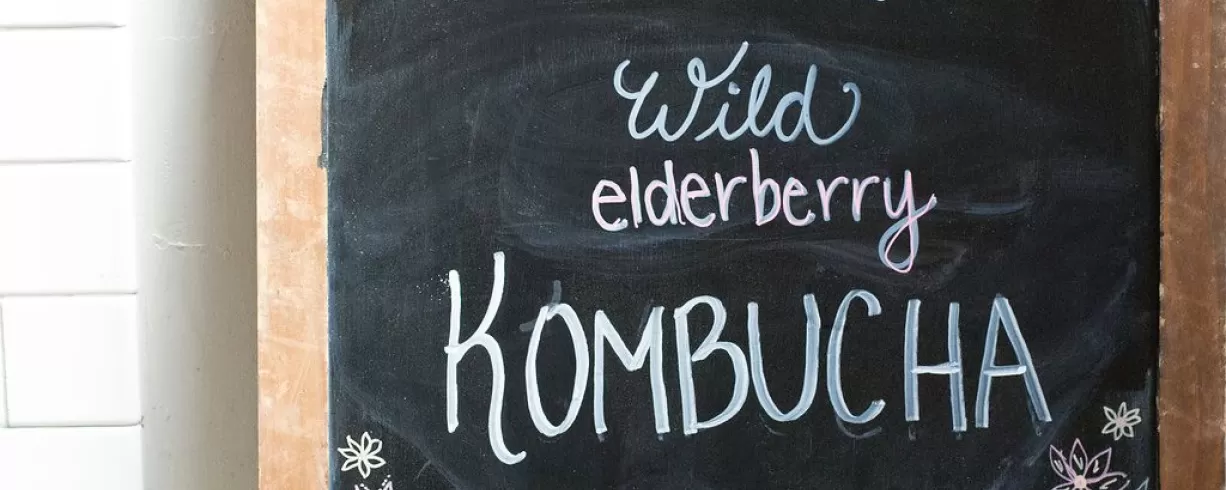 Wild
elderberry
KOMBUCHA